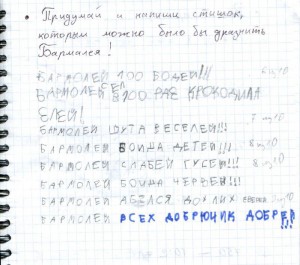 • Придумай и напиши стишок,
которым можно было бы дразнить
Бармалея!
БАРМОЛЕЙ 100 БОДЕЙ!!!
БАРМОЛЕЙ СЕЛ
100 РАЗ КРОКОДИЛА
ЕЛЕЙ!
БАРМОЛЕЙ ШУТА ВЕСЕЛЕЙ!!!
БАРМОЛЕЙ БОИЦА ДЕТЕЙ!!!
БАРМОЛЕЙ СЛАБЕЙ ГУСЕЙ!!!
БАРМОЛЕЙ БОИЦА ЧЕРВЕЙ!!!
БАРМОЛЕЙ
БАРМОЛЕЙ ВСЕХ ДОБРЮЧИК ДОБРЕЙ
!!!